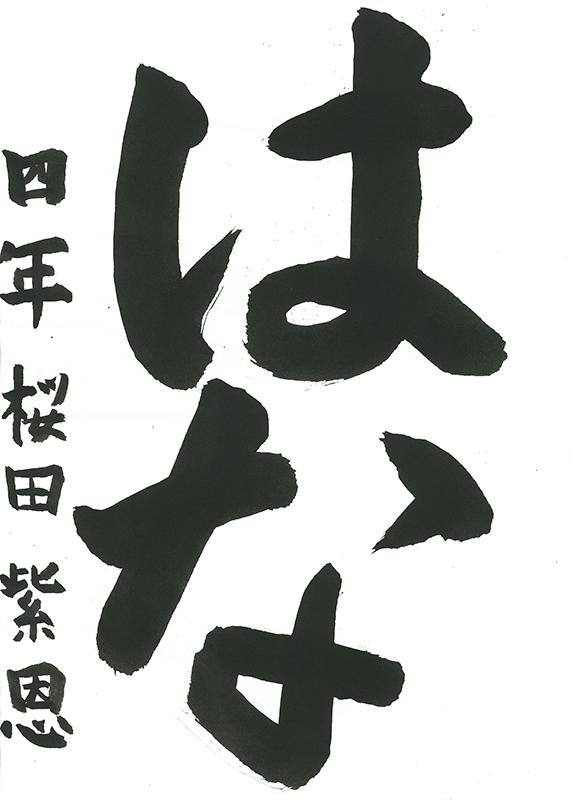 はな
四年 桜田 紫恩